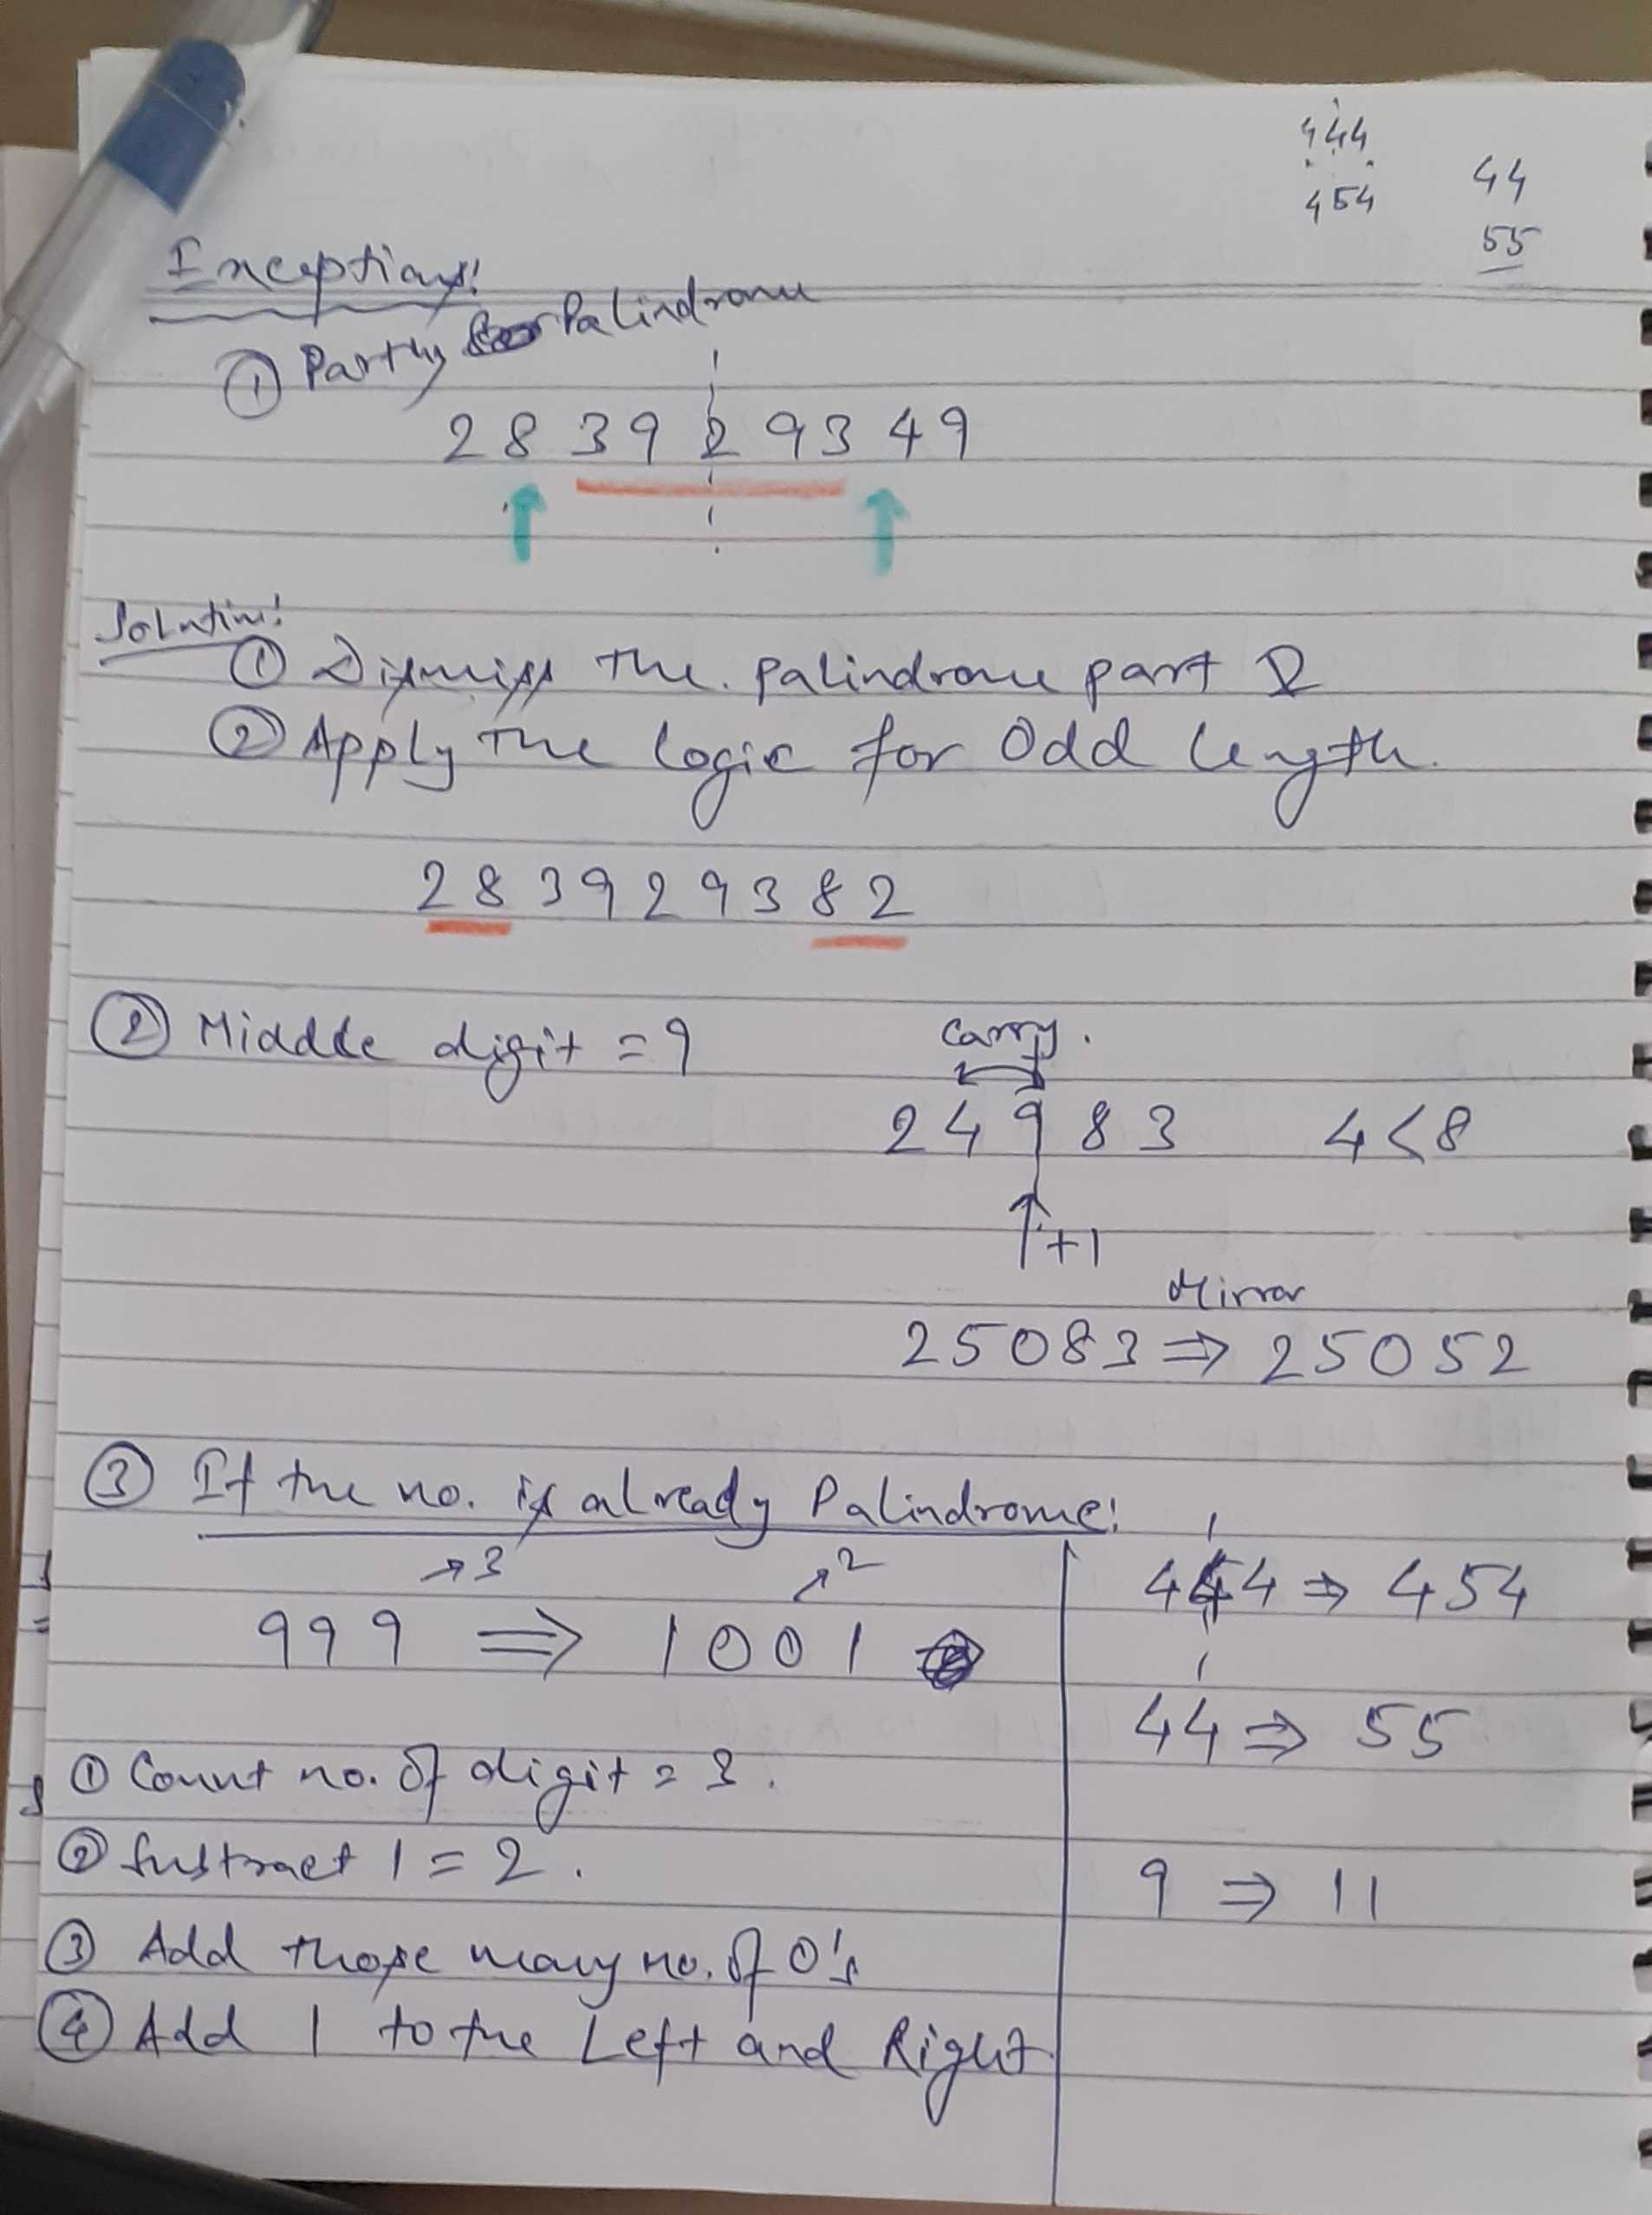 444
454
44
55
Exceptions:
① Partly Palindrome
28 39 2 93 49
Solution:
① Dismiss the palindrome part &
② Apply the logic for Odd length.
283929382
② Middle digit = 9
carry.
24 9 83 4<8
+1
Mirror
25083 ⇒ 25052
③ If the no. is already Palindrome:
→3 →2
999 ⇒ 1001
444 ⇒ 454
44 ⇒ 55
9 ⇒ 11
① Count no. of digit = 3.
② Substract 1 = 2.
③ Add those many no. of 0's
④ Add 1 to the Left and Right